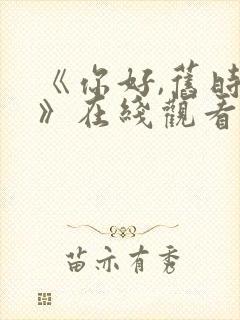 《你好,舊時
》在綫觀看
苗亦有秀